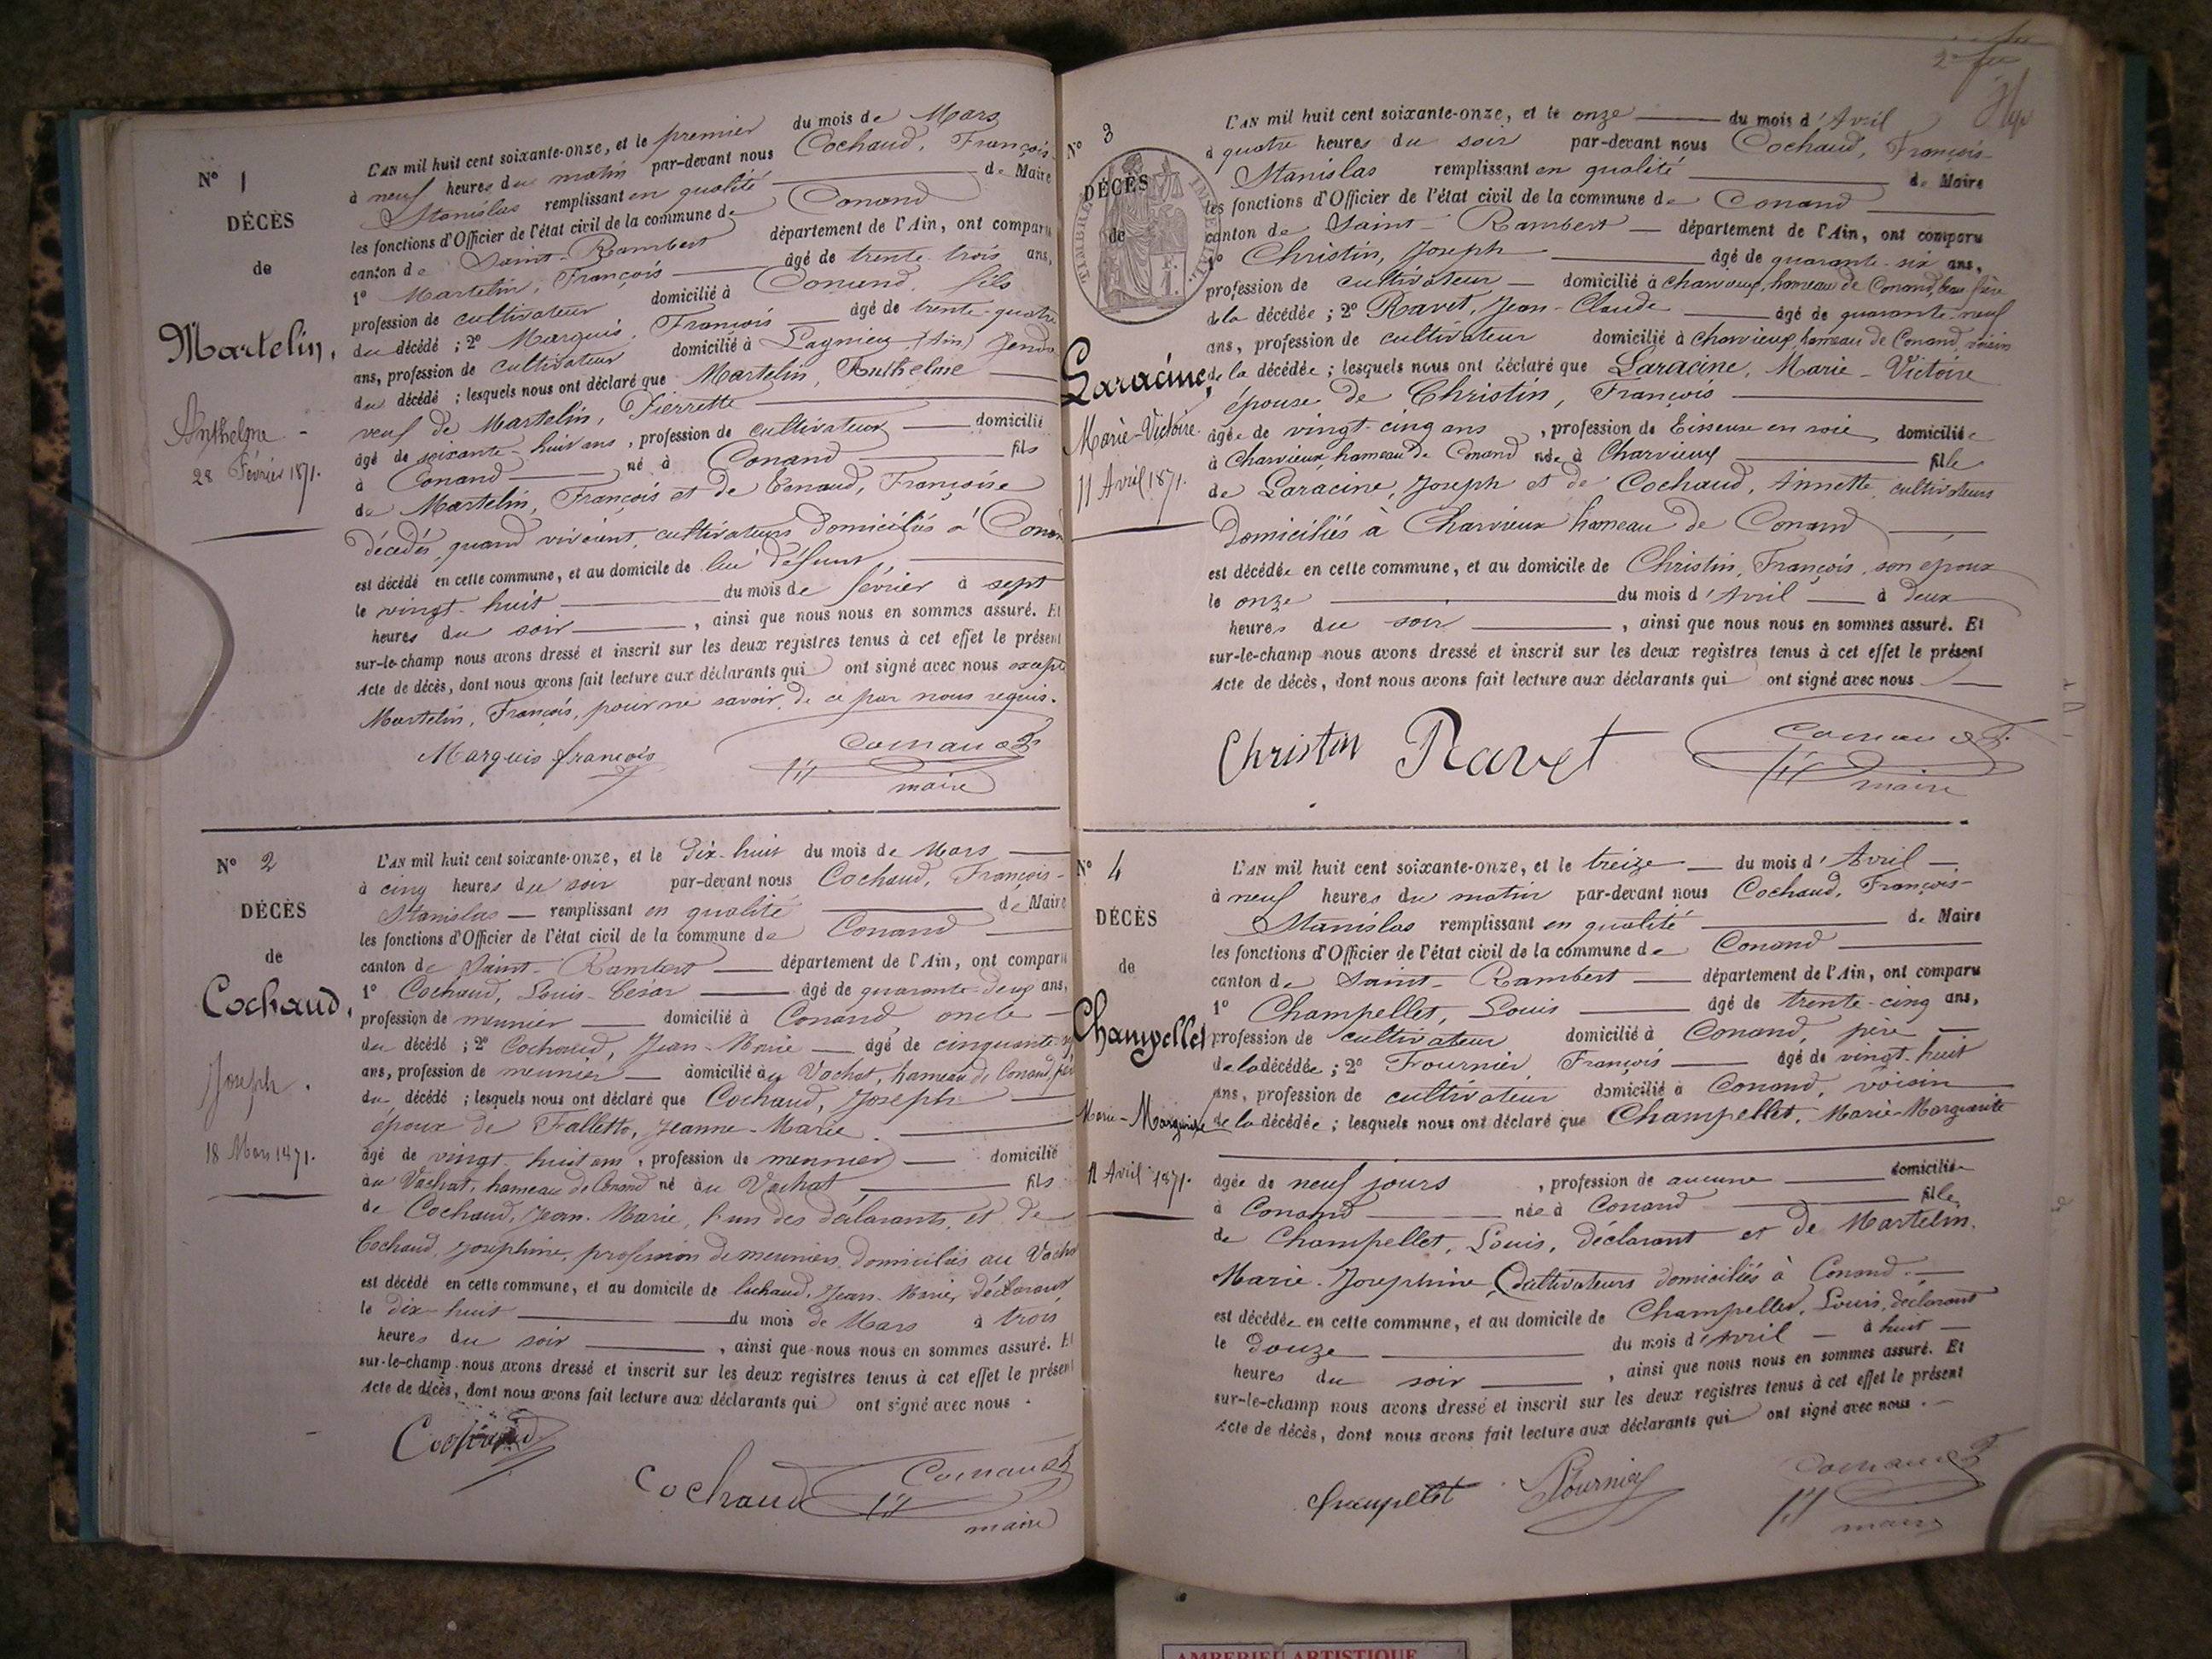 N° 1
DÉCÈS
de
Martelin,
Anthelme
28 Février 1871.
L'AN mil huit cent soixante-onze, et le premier du mois de Mars
à neuf heures du matin par-devant nous Cochaud, François-
Stanislas remplissant en qualité de Maire
les fonctions d'Officier de l'état civil de la commune de Conand
canton de Saint-Rambert département de l'Ain, ont comparu
1° Martelin, François âgé de trente-trois ans,
profession de cultivateur domicilié à Conand, fils
du décédé ; 2° Marquis, François âgé de trente-quatre
ans, profession de cultivateur domicilié à Lagnieu (Ain) gendre
du décédé ; lesquels nous ont déclaré que Martelin, Anthelme
veuf de Martelin, Pierrette
âgé de soixante-huit ans, profession de cultivateur domicilié
à Conand né à Conand fils
de Martelin, François et de Conand, Françoise
décédés, quand vivaient, cultivateurs domiciliés à Conan
est décédé en cette commune, et au domicile de lui défunt
le vingt-huit du mois de février à sept
heures du soir, ainsi que nous nous en sommes assuré. Et
sur-le-champ nous avons dressé et inscrit sur les deux registres tenus à cet effet le présent
Acte de décès, dont nous avons fait lecture aux déclarants qui ont signé avec nous excepté
Martelin, François, pour ne savoir, de ce par nous requis.
Marquis françois
maire
N° 2
DÉCÈS
de
Cochaud,
Joseph.
18 Mars 1871.
L'AN mil huit cent soixante-onze, et le dix-huit du mois de Mars
à cinq heures du soir par-devant nous Cochaud, François-
Stanislas remplissant en qualité de Maire
les fonctions d'Officier de l'état civil de la commune de Conand
canton de Saint-Rambert département de l'Ain, ont comparu
1° Cochaud, Louis-César âgé de quarante-deux ans,
profession de meunier domicilié à Conand, oncle
du décédé ; 2° Cochaud, Jean-Marie âgé de cinquante
ans, profession de meunier domicilié au Vachat, hameau de Conand,
du décédé ; lesquels nous ont déclaré que Cochaud, Joseph
époux de Falletto, Jeanne-Marie.
âgé de vingt-huit ans, profession de meunier domicilié
au Vachat, hameau de Conand né au Vachat, fils
de Cochaud, Jean-Marie, l'un des déclarants, et de
Cochaud, Joséphine, profession de meuniers domiciliés au Vacha
est décédé en cette commune, et au domicile de Cochaud, Jean-Marie, déclarant
le dix-huit du mois de Mars à trois
heures du soir, ainsi que nous nous en sommes assuré. Et
sur-le-champ nous avons dressé et inscrit sur les deux registres tenus à cet effet le présent
Acte de décès, dont nous avons fait lecture aux déclarants qui ont signé avec nous.
Cochaud
maire
2e
N° 3
DÉCÈS
de
TIMBRE IMPÉRIAL
Laracine,
Marie-Victoire.
11 Avril 1871.
L'AN mil huit cent soixante-onze, et le onze du mois d'Avril
à quatre heures du soir par-devant nous Cochaud, François-
Stanislas remplissant en qualité de Maire
les fonctions d'Officier de l'état civil de la commune de Conand
canton de Saint-Rambert département de l'Ain, ont comparu
1° Christin, Joseph âgé de quarante-six ans,
profession de cultivateur domicilié à Charvieux, hameau de Conand, beau frère
de la décédée ; 2° Ravet, Jean-Claude âgé de quarante-neuf
ans, profession de cultivateur domicilié à Charvieux, hameau de Conand, voisin
de la décédée ; lesquels nous ont déclaré que Laracine, Marie-Victoire
épouse de Christin, François
âgée de vingt-cinq ans, profession de Tisseuse en soie, domiciliée
à Charvieux, hameau de Conand née à Charvieux fille
de Laracine, Joseph et de Cochaud, Annette, cultivateurs
domiciliés à Charvieux hameau de Conand
est décédée en cette commune, et au domicile de Christin, François, son époux
le onze du mois d'Avril à deux
heures du soir, ainsi que nous nous en sommes assuré. Et
sur-le-champ nous avons dressé et inscrit sur les deux registres tenus à cet effet le présent
Acte de décès, dont nous avons fait lecture aux déclarants qui ont signé avec nous
Christin Ravet
maire
N° 4
DÉCÈS
de
Champellet
Marie-Marguerite
L'AN mil huit cent soixante-onze, et le treize du mois d'Avril
à neuf heures du matin par-devant nous Cochaud, François-
Stanislas remplissant en qualité de Maire
les fonctions d'Officier de l'état civil de la commune de Conand
canton de Saint-Rambert département de l'Ain, ont comparu
1° Champellet, Louis âgé de trente-cinq ans,
profession de cultivateur domicilié à Conand, père
de la décédée ; 2° Fournier, François âgé de vingt-huit
ans, profession de cultivateur domicilié à Conand, voisin
de la décédée ; lesquels nous ont déclaré que Champellet, Marie-Marguerite
Avril 1871.
âgée de neuf jours, profession de aucune domiciliée
à Conand née à Conand fille
de Champellet, Louis, déclarant et de Martelin.
Marie-Josephine, cultivateurs domiciliés à Conand.
est décédée en cette commune, et au domicile de Champellet, Louis, déclarant
le douze du mois d'Avril à huit
heures du soir, ainsi que nous nous en sommes assuré. Et
sur-le-champ nous avons dressé et inscrit sur les deux registres tenus à cet effet le présent
Acte de décès, dont nous avons fait lecture aux déclarants qui ont signé avec nous.
Champellet Fournier
maire
AMBERIEU ARTISTIQUE